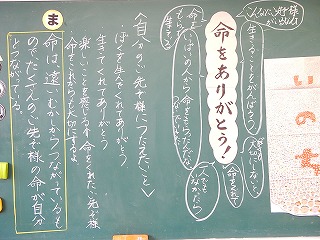 いのち
こんなに先祖様が出なく
生きることをがんばろう
命をありがとう！
大切にしないと
命をくれて
人たち
命はいっぱいの人から命をもらったんだな
もらって生きる
＜自分のご先祖様につたえたいこと＞
・ぼくを生んでくれてありがとう
生きてくれてありがとう
楽しいことを感じる命をくれたご先祖様
命をこれからも大切にするよ
ま
命は、遠いむかしからつながっているも
のでたくさんのご先祖様の命が自分
とつながっている。